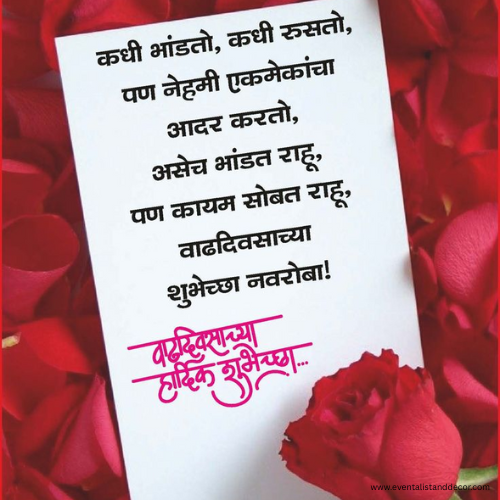 कधी भांडतो, कधी रुसतो,
पण नेहमी एकमेकांचा
आदर करतो,
असेच भांडत राहू,
पण कायम सोबत राहू,
वाढदिवसाच्या
शुभेच्छा नवरोबा!
वाढदिवसाच्या
हार्दिक शुभेच्छा...
www.eventalistanddecor.com